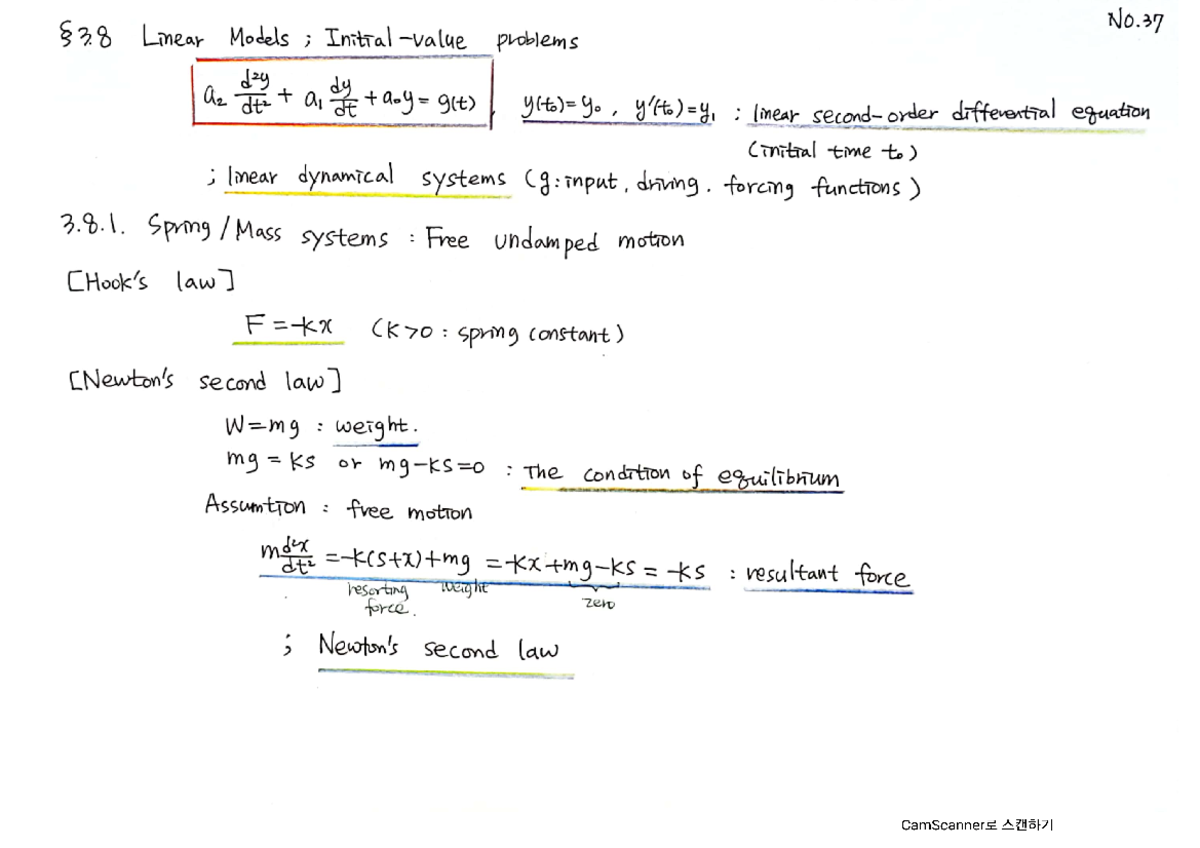 No.37
§3.8 Linear Models ; Initial-value problems
a₂ d²y/dt² + a₁ dy/dt + a₀y = g(t), y(t₀)=y₀, y′(t₀)=y₁ : linear second-order differential equation
(initial time t₀)
; linear dynamical systems (g:input, driving. forcing functions)
3.8.1. Spring/Mass systems : Free undamped motion
[Hook's law]
F=-kx (k>0 : spring constant)
[Newton's second law]
W=mg : weight.
mg = ks or mg-ks=0 : The condition of equilibrium
Assumtion : free motion
m d²x/dt² = -k(s+x)+mg = -kx+mg-ks = -ks : resultant force
resorting force. weight zero
; Newton's second law
CamScanner로 스캔하기